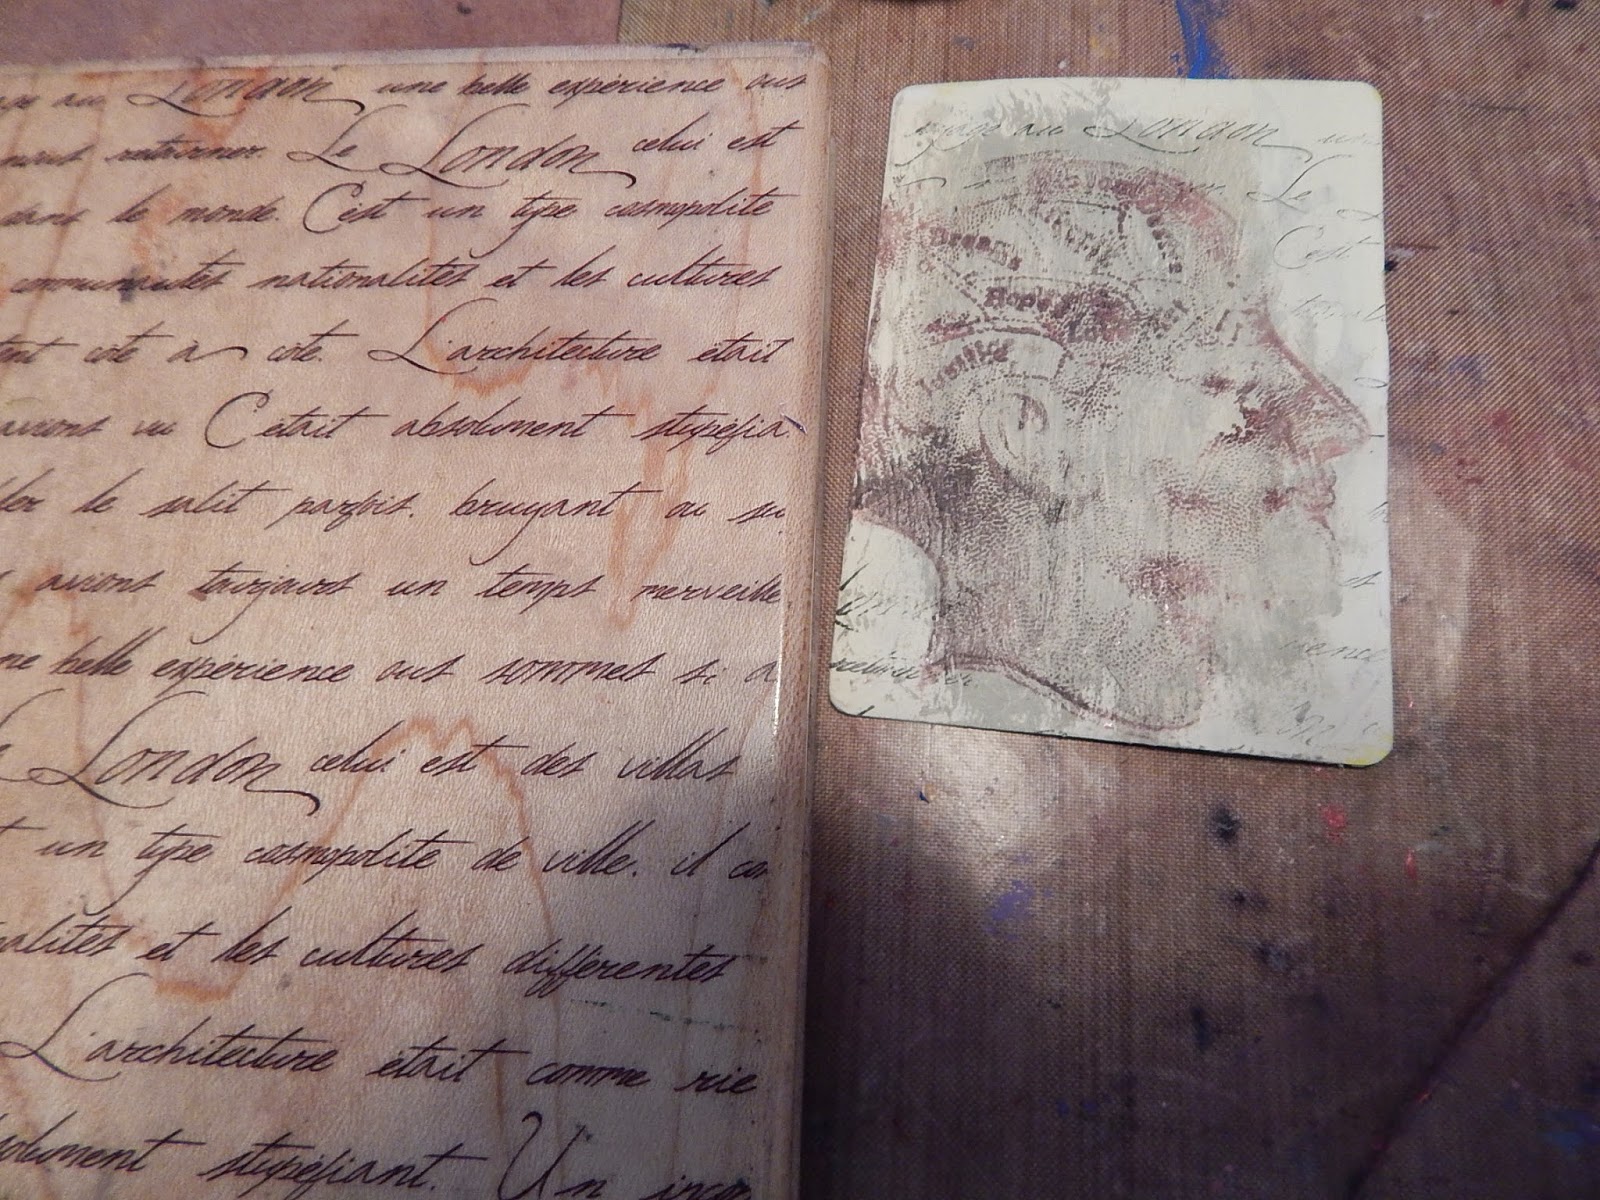 au London une belle expérience ous
nous retourner. Le London celui est
dans le monde. C'est un type cosmopolite
communautes nationalités et les cultures
cote a cote. L'architecture etait
avions vu C'etait absolument stupéfia
le salit parfois, bruyant ou su
avions toujours un temps merveille
ne belle expérience ous sommes si a
London celui est des villas
un type cosmopolite de ville. il co
nalités et les cultures différentes
L'architecture etait comme rie
solument stupéfiant. Un incro
oyage au London un
Le
C'est
Dreams
Hope